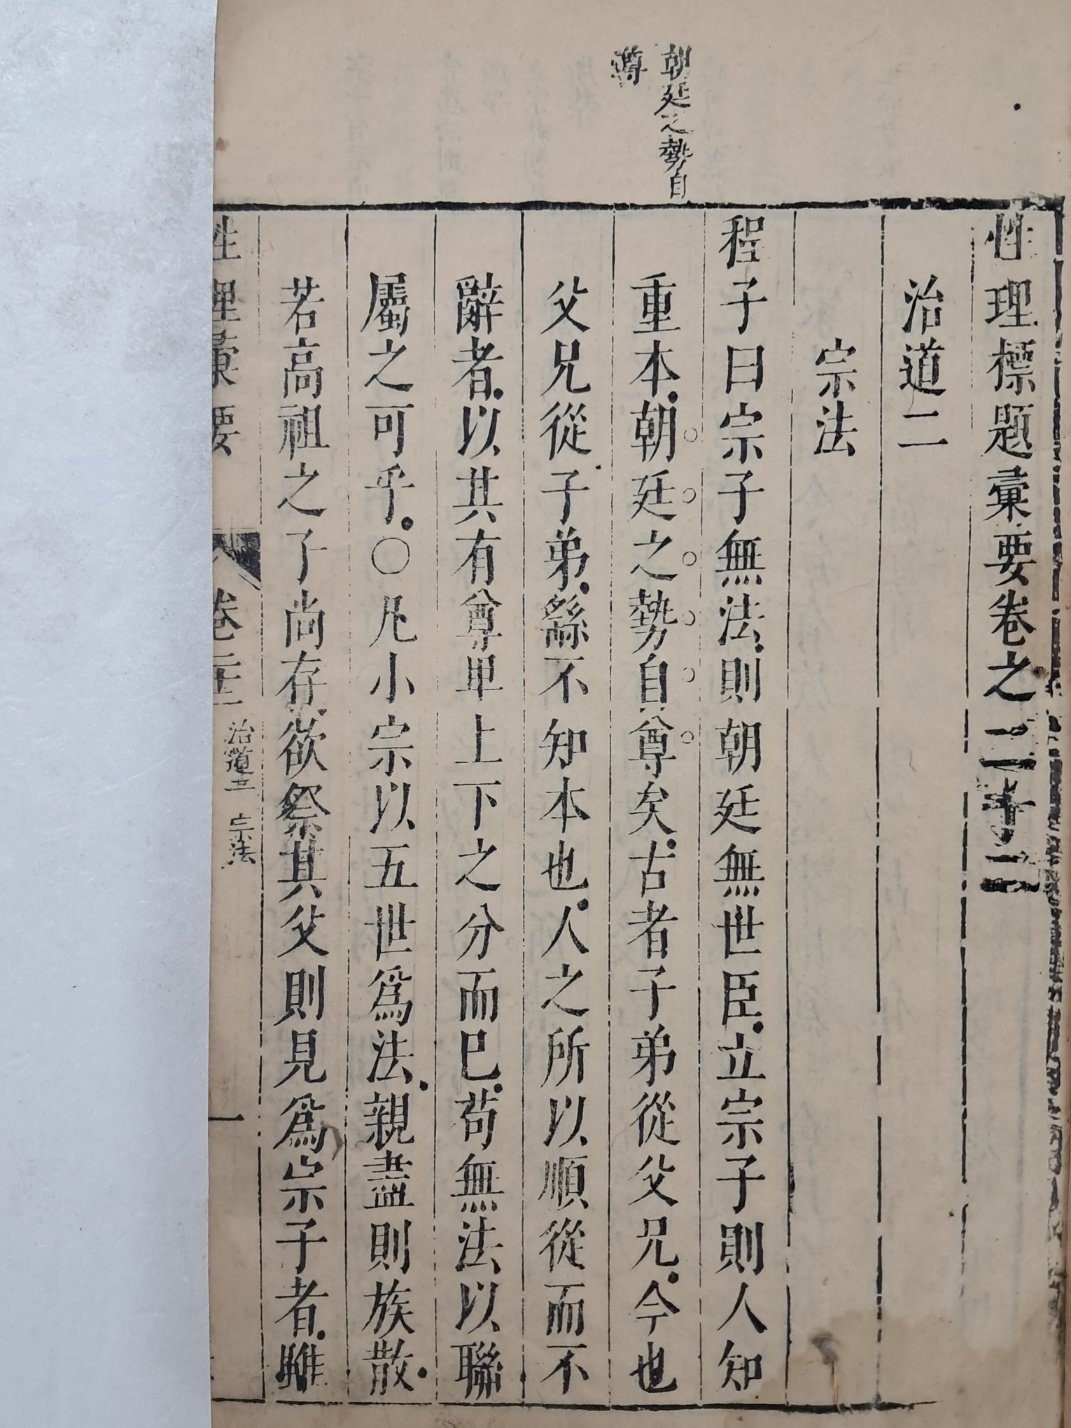 朝廷之勢自
尊
性理標題彙要卷之二十二
治道二
宗法
程子曰宗子無法則朝廷無世臣立宗子則人知
重本朝廷之勢自尊矣古者子弟從父兄今也
父兄從子弟繇不知本也人之所以順從而不
辭者以其有尊卑上下之分而已苟無法以聯
屬之可乎〇凡小宗以五世爲法親盡則族散
若高祖之子尚存欲祭其父則見爲宗子者雖
性理彙要 卷二十二 治道二 宗法 一